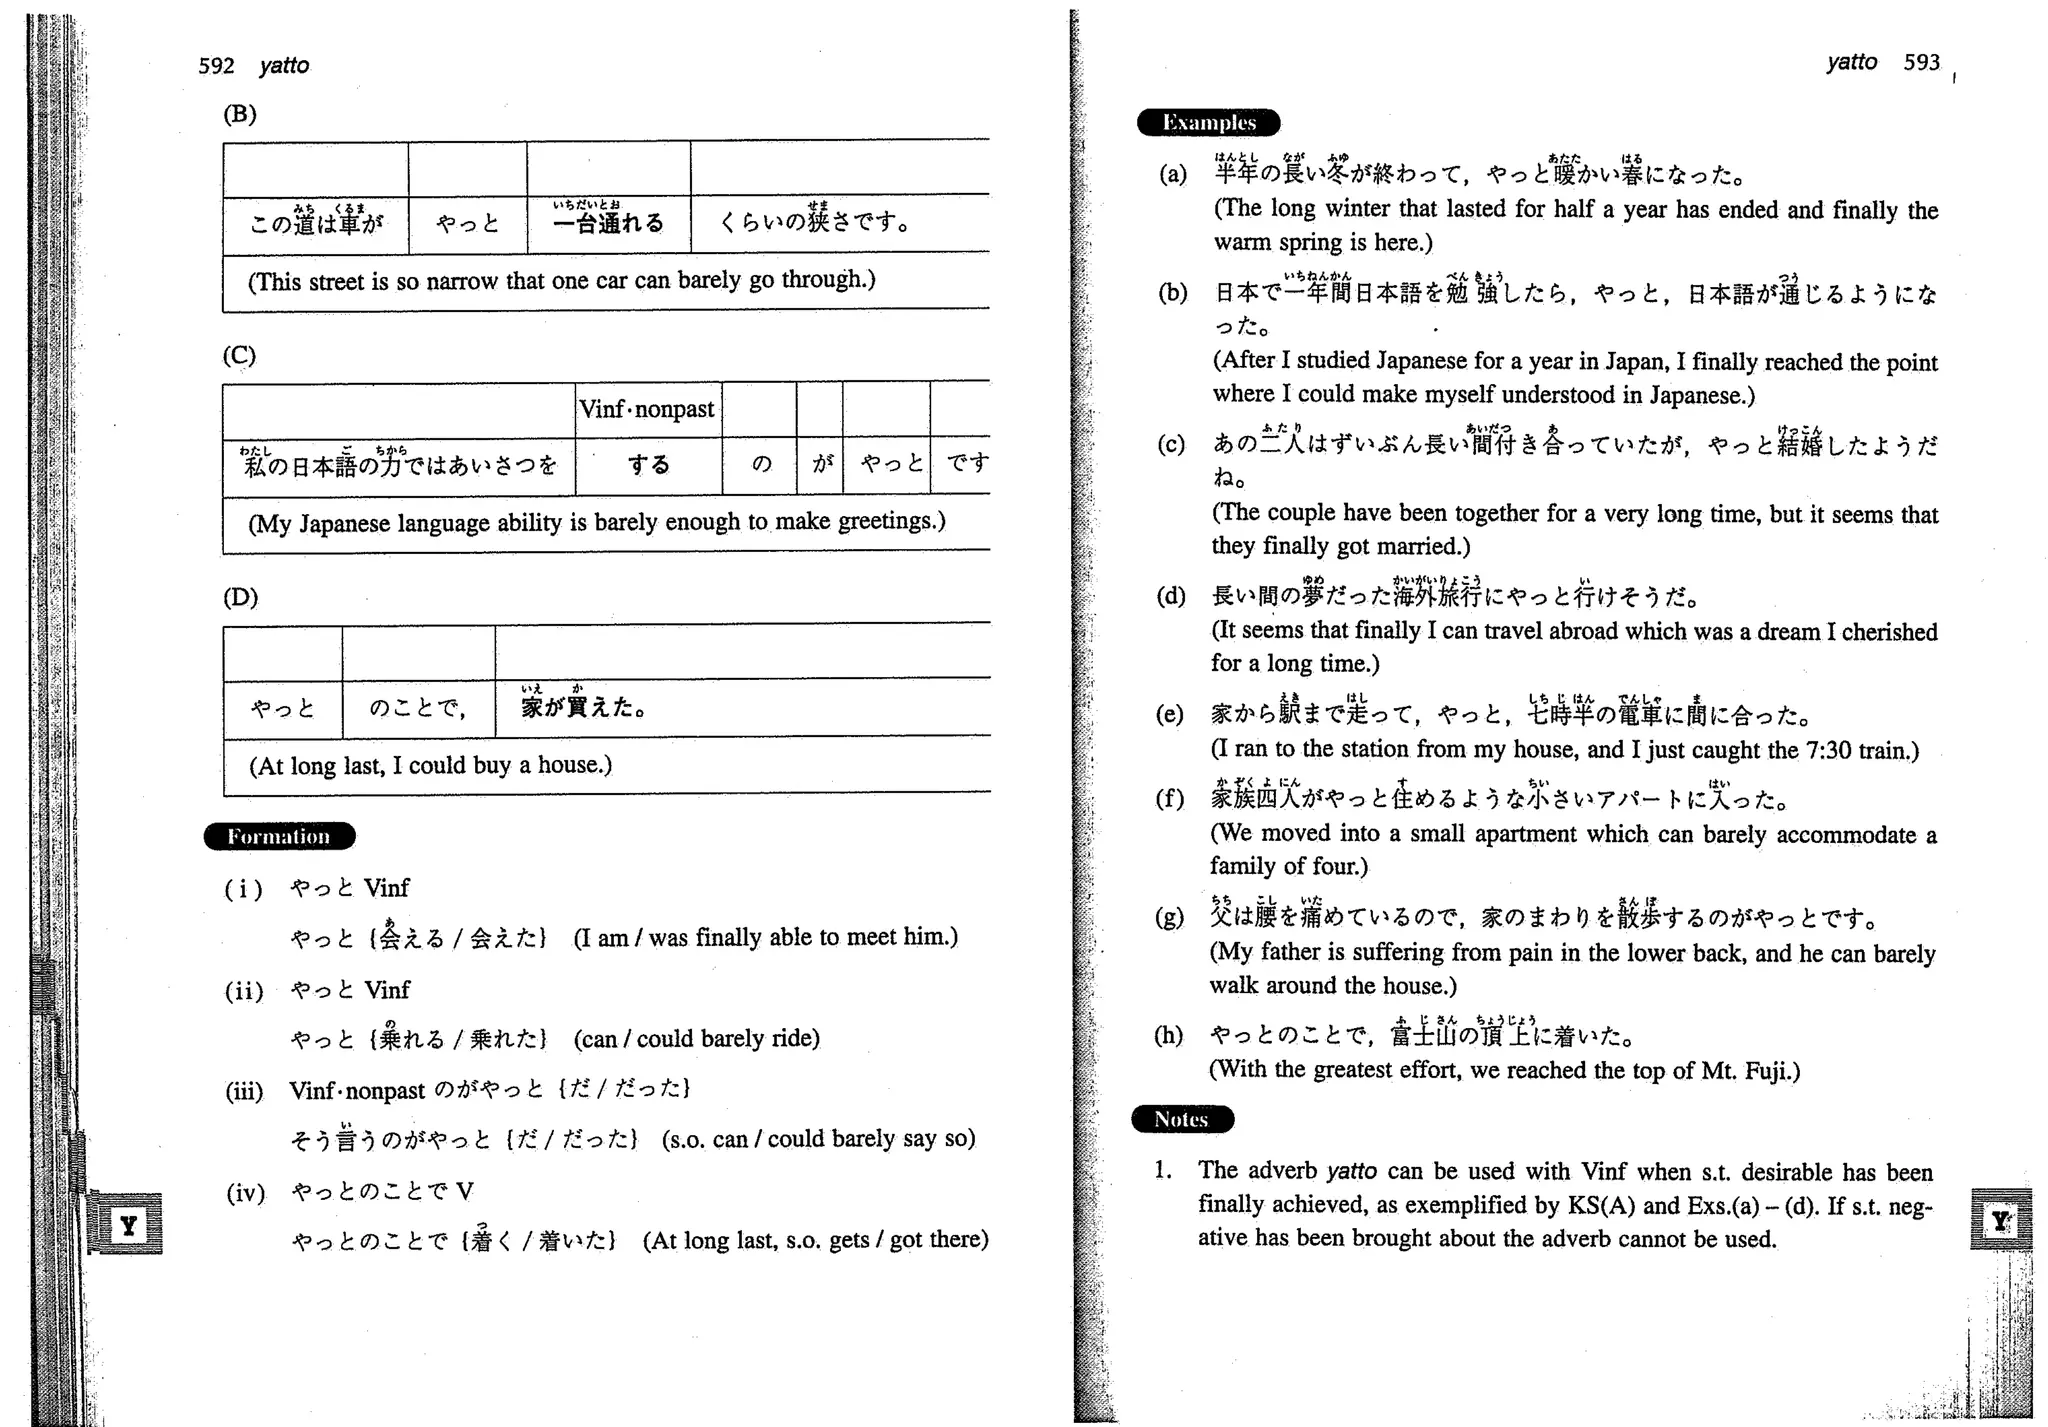 592 yatto
(B)
この道は車が やっと 一台通れる くらいの狭さです。
みち くるま いちだいとお せま
(This street is so narrow that one car can barely go through.)
(C)
Vinf·nonpast
わたし ご ちから
私の日本語の力ではあいさつを する の が やっと です
(My Japanese language ability is barely enough to make greetings.)
(D)
いえ か
やっと のことで, 家が買えた。
(At long last, I could buy a house.)
Formation
(i) やっと Vinf
あ
やっと {会える / 会えた} (I am / was finally able to meet him.)
(ii) やっと Vinf
の
やっと {乗れる / 乗れた} (can / could barely ride)
(iii) Vinf·nonpast のがやっと {だ / だった}
い
そう言うのがやっと {だ / だった} (s.o. can / could barely say so)
(iv) やっとのことで V
つ
やっとのことで {着く / 着いた} (At long last, s.o. gets / got there)
Y
yatto 593
Examples
はんとし なが ふゆ あたた はる
(a) 半年の長い冬が終わって, やっと暖かい春になった。
(The long winter that lasted for half a year has ended and finally the
warm spring is here.)
いちねんかん べんきょう つう
(b) 日本で一年間日本語を勉強したら, やっと, 日本語が通じるようにな
った。
(After I studied Japanese for a year in Japan, I finally reached the point
where I could make myself understood in Japanese.)
ふたり あいだつ あ けっこん
(c) あの二人はずいぶん長い間付き合っていたが, やっと結婚したようだ
ね。
(The couple have been together for a very long time, but it seems that
they finally got married.)
ゆめ かいがいりょこう い
(d) 長い間の夢だった海外旅行にやっと行けそうだ。
(It seems that finally I can travel abroad which was a dream I cherished
for a long time.)
えき はし しちじはん でんしゃ ま
(e) 家から駅まで走って, やっと, 七時半の電車に間に合った。
(I ran to the station from my house, and I just caught the 7:30 train.)
かぞくよにん す ちい はい
(f) 家族四人がやっと住めるような小さいアパートに入った。
(We moved into a small apartment which can barely accommodate a
family of four.)
ちち こし いた さんぽ
(g) 父は腰を痛めているので, 家のまわりを散歩するのがやっとです。
(My father is suffering from pain in the lower back, and he can barely
walk around the house.)
ふじさん ちょうじょう
(h) やっとのことで, 富士山の頂上に着いた。
(With the greatest effort, we reached the top of Mt. Fuji.)
Notes
1. The adverb yatto can be used with Vinf when s.t. desirable has been
finally achieved, as exemplified by KS(A) and Exs.(a) – (d). If s.t. neg-
ative has been brought about the adverb cannot be used.
Y